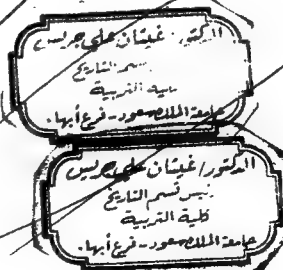 الدكتور. غيثان علي جريس
قسم التاريخ
كلية التربية
جامعة الملك سعود - فرع أبها.
الدكتور / غيثان علي جريس
رئيس قسم التاريخ
كلية التربية
جامعة الملك سعود - فرع أبها.